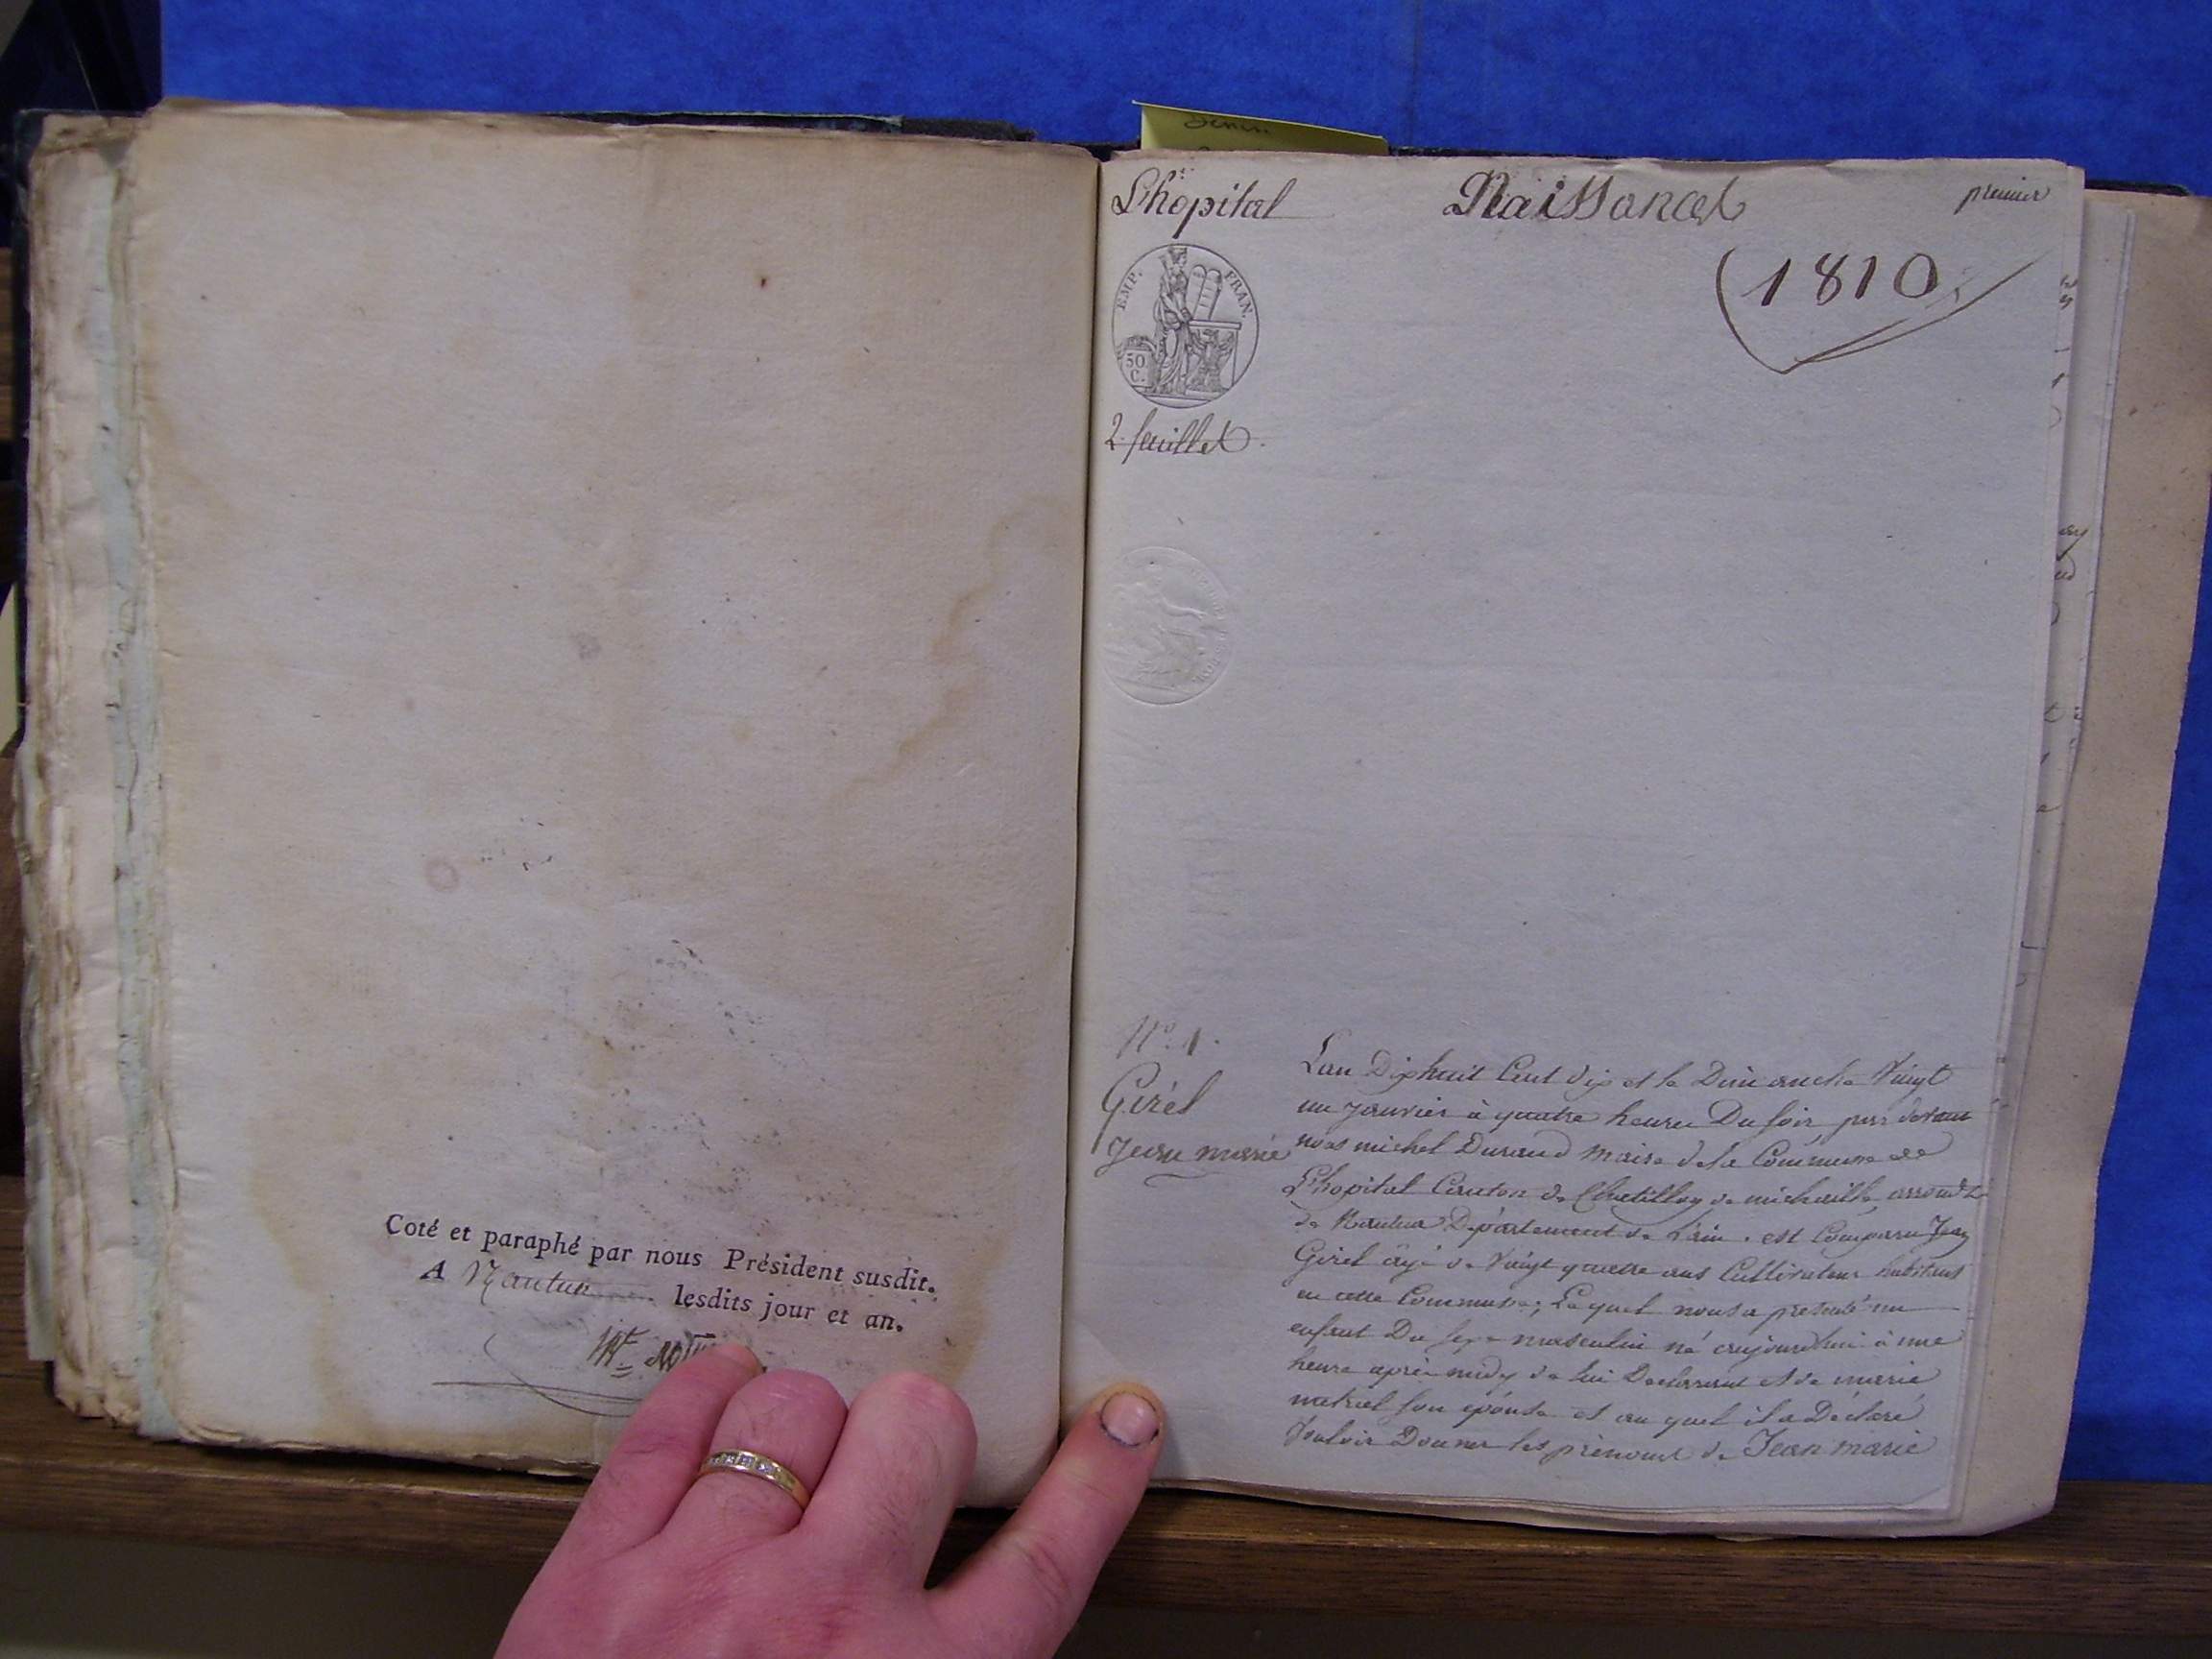 Coté et paraphé par nous Président susdit.
A Nantua lesdits jour et an.
L'hopital
Naissances
premier
1810
EMP. FRAN.
50
C.
2 feuillet
N.º 1.
Girel
Jean marie
Lan Dix huit Cent dix et le Dimanche Vingt
un janvier à quatre heures Du soir par devant
nous michel Durand maire de la Commune de
L'hopital Canton de Chatillon de michaille arrond.t
de Nantua Département de L'ain. est Comparu Jean
Girel âgé de Vingt quatre ans Cultivateur habitant
en cette Commune; Lequel nous a presenté un
enfant Du sexe masculin né aujourdhui à une
heure après midy de lui Declarant et de marie
son epouse et au quel il a Déclaré
Vouloir Donner les prénoms de Jean marie